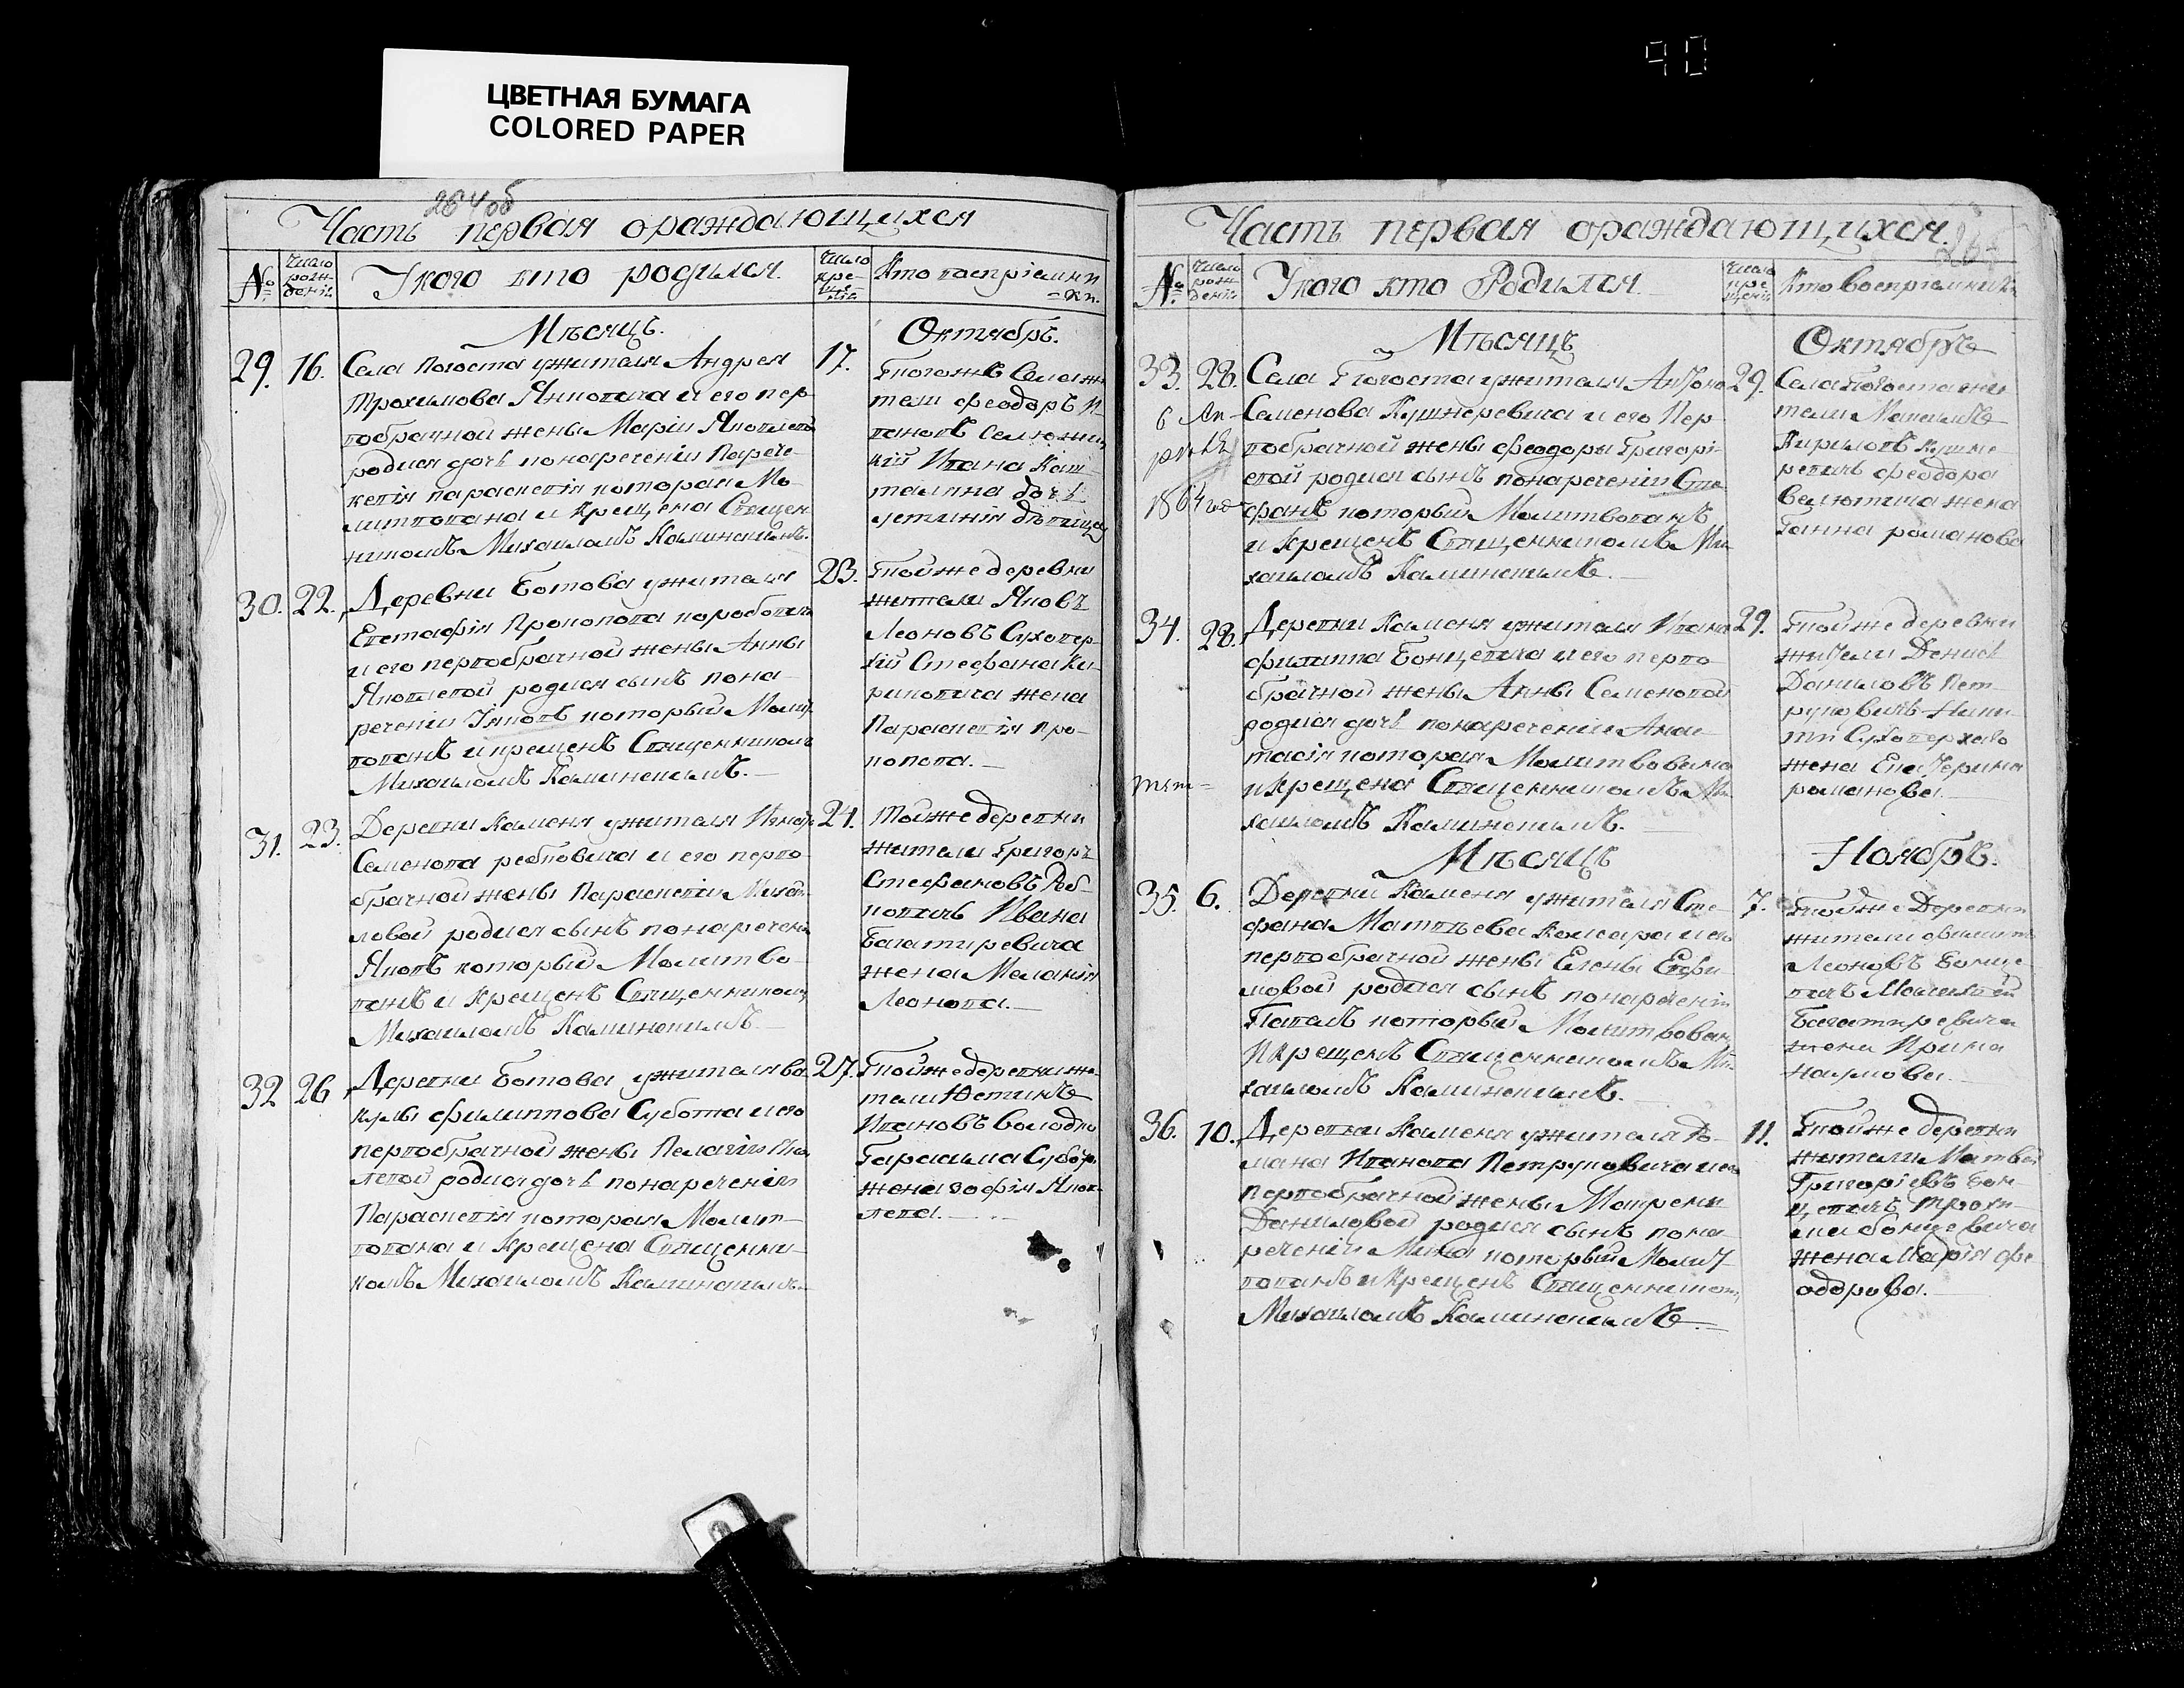 ЦВЕТНАЯ БУМАГА
COLORED PAPER
90
264об
Часть первая ораждающихся
№
Число рож-деніѧ
У кого кто родился
Число кре-ще-нія
Кто воспріемни
=ки.
Мѣсяцъ.
Октябрь.
29.
16.
17.
Села Погоста жителя Андрея
Трохимова Янповича и его пер
вобрачной жены Маріи Яковлевой
родися дочь понареченіи Параске
кевія параскевія которая Мо
литвована и крещена Священ
никомъ Михаиломъ Каминскимъ.
Тогожъ Села жи
тели Феодоръ И
вановъ Селюжиц
кій Ивана
дочь
30.
22.
23.
Деревни Ботова жителя
Евстафія Прокопова
и его первобрачной жены Анны
Яковлевой родися сынъ пона
реченіи Іяковъ который Молит
вованъ и крещенъ Священникомъ
Михаиломъ Каминскимъ.
Тойже деревни
жители Яковъ
Леоновъ Сухопер
кій Стефана Ки
риловича жена
Параскевія Про
копова.
31.
23.
24.
Деревни Каменя жителя
Семенова Рабковича и его перво
брачной жены Параскевіи Михай
ловой родися сынъ понаречени
Яковъ который Молитво
ванъ и крещенъ Священникомъ
Михаиломъ Каминскимъ
Тойже деревни
жители Григоръ
Стефановъ Раб
ковичъ Ивана
Багатиревича
жена Меланія
Леонова.
32
26
27.
Деревни Ботова жителя Ва
кулы Филиппова Субота и его
первобрачной жены Пелагіи
левой родися дочь понареченіи
Параскевія которая Молит
вована и крещена Священни
комъ Михаиломъ Каминскимъ.
Тойже деревни жи
тели Юстинъ
Ивановъ Володко
Гарасима Субота
жена Зофія Яков
лева.
Часть первая ораждающихся.
265
№
Число рож-деніѧ
У кого кто Родился
Число кре-щенія
Кто Воспріемники
Мѣсяцъ
Октябрь
33.
28.
29.
6 Ап-
рѣля
1864 го
Села Погоста жителя Антона
Семенова Кушнеревича и его Пер
вобрачной жены Феодоры Григорі
евой родися сынъ понареченіи Сте
фанъ который Молитвованъ
и крещенъ Священникомъ Ми
хаиломъ Каминскимъ.
Села Погоста жи
тели Максимъ
Кириловъ Кушне
ревичъ Феодора
Велютича жена
Ганна романова
34.
28.
29.
Деревни Каменя жителя Ивана
Филиппа Бонцевича и его перво
брачной жены Анны Семеновой
родися дочь понареченіи Анас
тасія которая Молитвована
и крещена Священникомъ Ми
хаиломъ Каминскимъ.
Тойже деревни
жители Денисъ
Даниловъ Пет
руковичъ Ники
ты Сухоперкаго
жена Екатерина
романова.
Мѣсяцъ
Ноябрь.
35.
6.
7.
Деревни Каменя жителя Сте
фана Матвѣева Комара и его
первобрачной жены Елены Ефи
мовой родися сынъ понареченіи
Павелъ который Молитвован
и крещенъ Священникомъ Ми
хаиломъ Каминскимъ.
Тойже Деревни
жители Филиппъ
Леоновъ Бонце
вичъ
Багатиревича
жена Ирина
Наумова.
36.
10.
11.
Деревни Каменя жителя Ро
мана Иванова Петруковича и его
первобрачной жены Матрены
Даниловой родися сынъ пона
реченіи Миха который Молит
вованъ и крещенъ Священникомъ
Михаиломъ Каминскимъ.
Тойже деревни
жители Матвей
Григоріевъ Бон
цевичъ Трохи
ма бонцевича
жена Марія Фе
одорова.